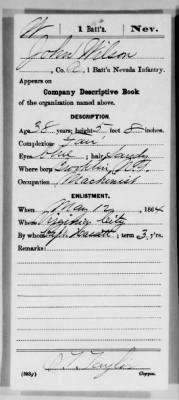 W 1 Batt's. Nev.
John Wilson
, Co. A, 1 Batt's Nevada Infantry.
Appears on
Company Descriptive Book
of the organization named above.
DESCRIPTION.
Age 38 years; height 5 feet 8 inches.
Complexion Fair
Eyes Blue; hair Sandy
Where born
Occupation Machinist
ENLISTMENT.
When May 12, 1864.
Where Virginia City
By whom; term 3, y'rs.
Remarks:
Copyist.